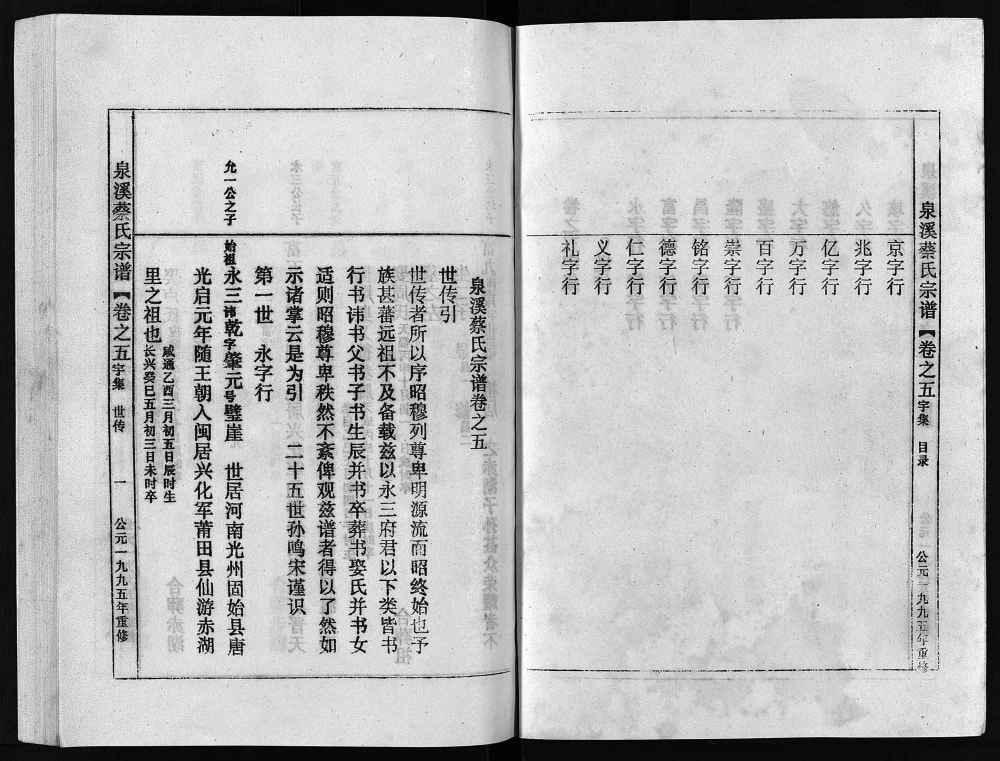 泉溪蔡氏宗谱【卷之五 字集 目录 公元一九九五年重修
京字行
兆字行
亿字行
万字行
百字行
崇字行
铭字行
德字行
仁字行
义字行
礼字行
泉溪蔡氏宗谱卷之五
世传引
世传者所以序昭穆列尊卑明源流而昭终始也予
族甚蕃远祖不及备载兹以永三府君以下类皆书
行书讳书父书子书生辰并书卒葬书娶氏并书女
适则昭穆尊卑秩然不紊俾观兹谱者得以了然如
示诸掌云是为引 二十五世孙鸣宋谨识
第一世 永字行
允一公之子
始祖永三讳乾字肇元号璧崖 世居河南光州固始县唐
光启元年随王朝入闽居兴化军莆田县仙游赤湖
里之祖也咸通乙酉三月初五日辰时生
长兴癸巳五月初三日未时卒
泉溪蔡氏宗谱【卷之五 字集 世传 一 公元一九九五年重修